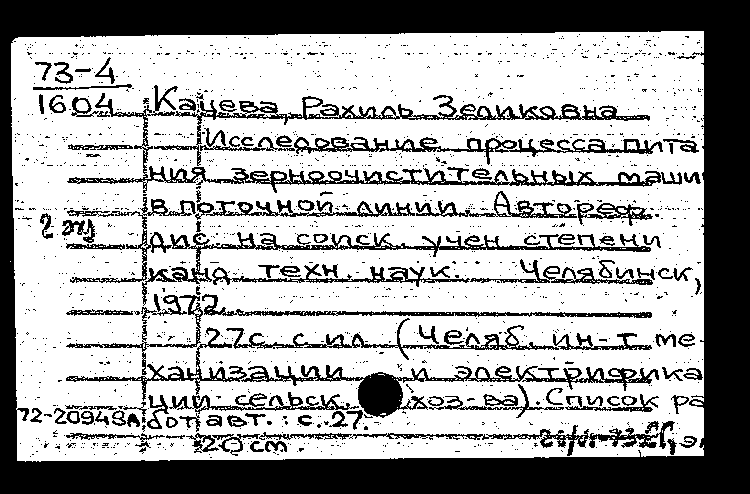 73-4
1604
Кацева, Рахиль Зеликовна
Исследование процесса пита-
ния зерноочистительных машин
в поточной линии. Автореф.
2 экз
дис. на соиск. учен. степени
канд. техн. наук. Челябинск,
1972.
27с. с ил. (Челяб. ин-т ме-
ханизации и электрифика
ции сельск. хоз-ва). Список ра
72-20948А бот авт.: с. 27.
20 см.